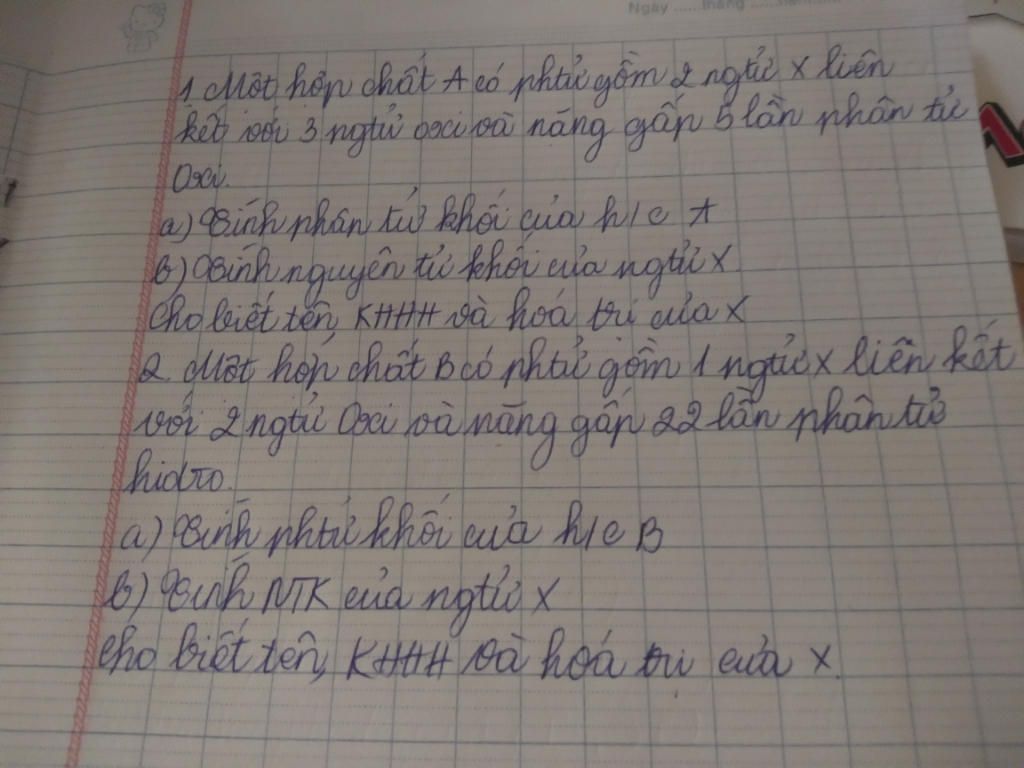 Ngày ......tháng ......năm......
1 Một hợp chất A có phtử gồm 2 ngtử X liên
kết với 3 ngtử oxi và nặng gấp 5 lần phân tử
Oxi.
a) Tính phân tử khối của h/c A
b) Tính nguyên tử khối của ngtử X
Cho biết tên, KHHH và hoá trị của X
2. Một hợp chất B có phtử gồm 1 ngtử X liên kết
với 2 ngtử Oxi và nặng gấp 22 lần phân tử
hidro.
a) Tính phtử khối của h/c B
b) Tính NTK của ngtử X
Cho biết tên, KHHH và hoá trị của X.